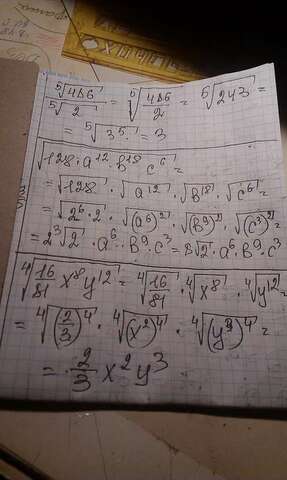 ⁵√486 / ⁵√2 = ⁵√(486/2) = ⁵√243 =
= ⁵√(3⁵) = 3
√(128·a¹²·b¹⁸·c⁶) =
= √128 · √(a¹²) · √(b¹⁸) · √(c⁶) =
= √(2⁶·2) · √((a⁶)²) · √((b⁹)²) · √((c³)²) =
= 2³√2 · a⁶ · b⁹ · c³ = 8√2 · a⁶ · b⁹ · c³
⁴√(16/81 x⁸y¹²) = ⁴√(16/81) · ⁴√(x⁸) · ⁴√(y¹²) =
= ⁴√((2/3)⁴) · ⁴√((x²)⁴) · ⁴√((y³)⁴) =
= 2/3 x²y³